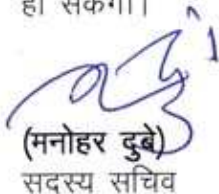 हो सकेगी।
(मनोहर दुबे)
सदस्य सचिव